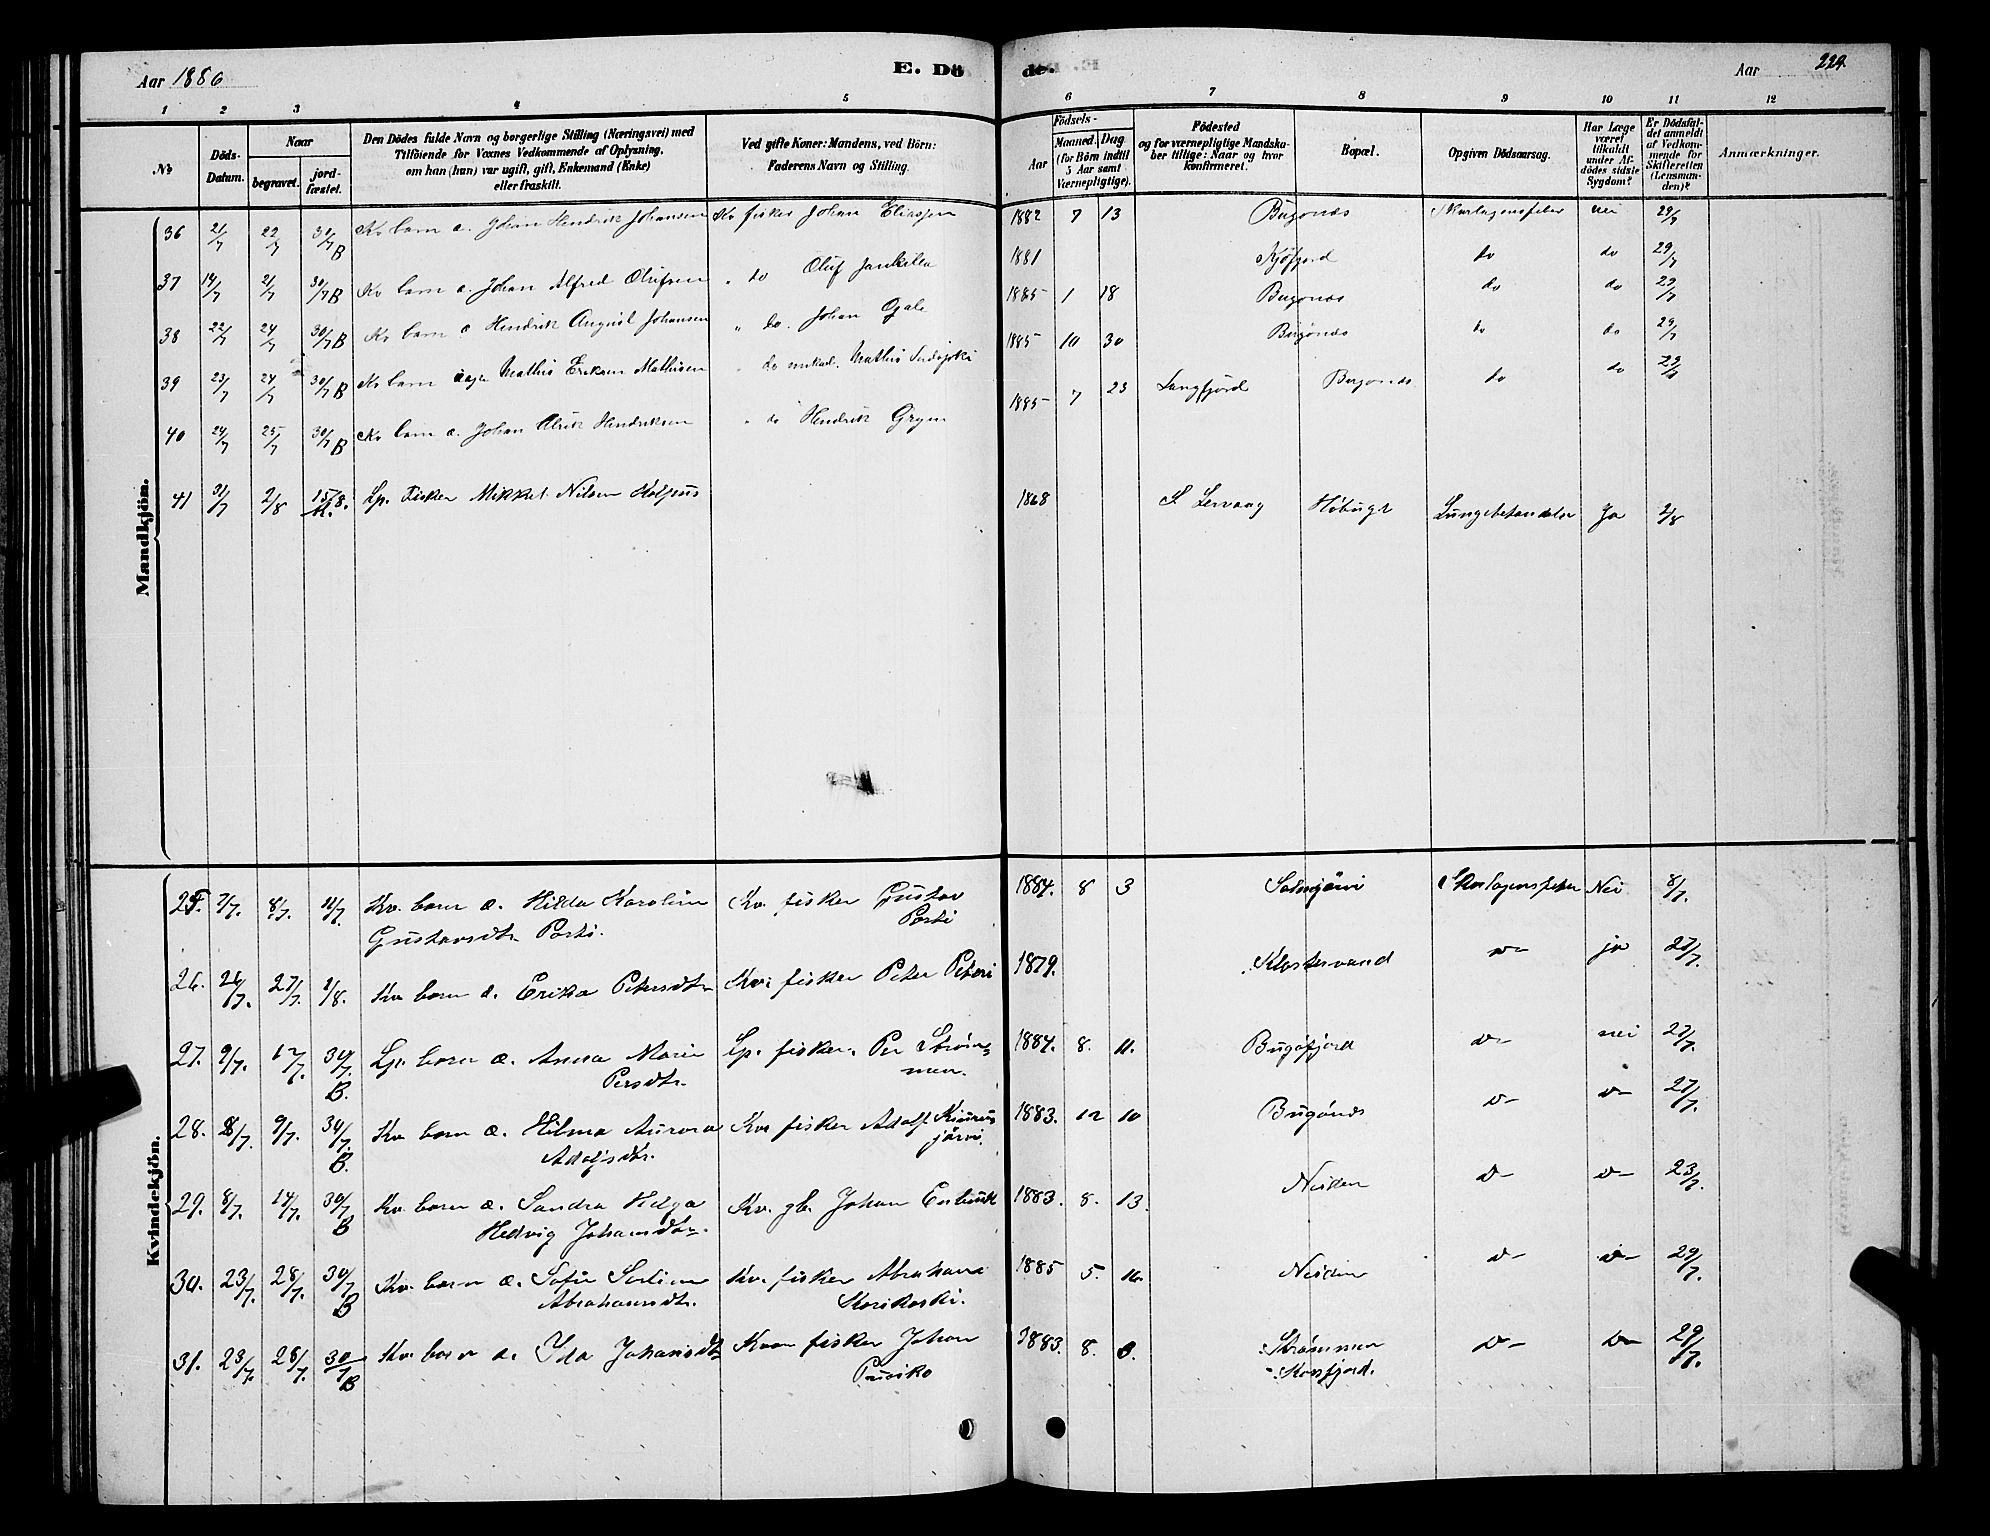 Aar 1886 E. Dö de. Aar 224.
1 2 3 4 5 6 7 8 9 10 11 12
№ Döds-Datum. Naar begravet. jord-fæstet. Den Dödes fulde Navn og borgerlige Stilling (Næringsvei) med Tilföiende for Voxnes Vedkommende af Oplysning, om han (hun) var ugift, gift, Enkemand (Enke) eller fraskilt. Ved gifte Koner: Mandens, ved Börn: Faderens Navn og Stilling. Födsels- Aar Maaned Dag (for Börn indtil 5 Aar samt Værnepligtige). Födested og for værnepligtige Mandskaber tillige: Naar og hvor konfirmeret. Bopæl. Opgiven Dödsaarsag. Har Læge været tilkaldt under Afdödes sidste Sygdom? Er Dödsfaldet anmeldt af Vedkommende for Skifteretten (Lensmanden)? Anmærkninger.
Mandkjön.
36 21/7 22/7 30/7 B Kv barn æ. Johan Hendrik Johansen Kv fisker Johan Eliassen 1882 7 13 Bugønes Skarlagensfeber nei 29/7
37 14/7 21/7 30/7 B Kv barn æ. Johan Alfred Olufsen " do Oluf 1881 Kjøfjord do do 29/7
38 22/7 24/7 30/7 B Kv barn æ Hendrik August Johansen " do. Johan 1885 1 18 Bugønes do do 29/7
39 23/7 24/7 30/7 B Kv barn Mathis Eriksen Mathisen " do Mathis 1885 10 30 Bugønes do do 29/7
40 24/7 25/7 30/7 B Kv barn æ. Johan Ulrik Hendriksen " do Hendrik 1885 7 23 Langfjord Bugønes do do 29/7
41 31/7 2/8 15/8. Lp. Fisker Mikkel Nilsen 1868 Høbugt Ja 2/8
Kvindekjön.
25. 7/7. 8/7. 11/7. Kv. barn æ. Hilda Karoline Kv. fisker Gustav 1884. 8 3 Salmijärvi Skarlagensfeber Nei 8/7.
Gustavsdtr. Porti. Porti
26. 26/7. 27/7. 1/8. Kv barn æ. Erika Petersdtr Kv. fisker Peter Peteri 1879. Klostervand do ja 27/7.
27. 9/7. 17/7. 30/7. B. Lp. barn æ. Anna Marie Lp. fisker. Per Strøm- 1884. 8. 11. Bugøfjord do nei 27/7.
Persdtr. men.
28. 8/7. 9/7. 30/7. B. Kv barn æ. Hilma Aurora Kv fisker Adolf 1883. 12 10 Bugønes do do 27/7.
Adolfsdtr. järvi.
29. 8/7. 14/7. 30/7 B Kv barn æ. Sandra Helga Kv. gb. Johan 1883. 8. 13. Neiden do do 23/7.
Hedvig Johansdtr.
30. 23/7. 28/7. 30/7 B Kv. barn æ. Sofie Kv. fisker Abraham 1885 5. 16. Neiden do do 29/7.
Abrahamsdtr. Korikoski.
31. 23/7. 28/7. 30/7 B Kv. barn æ. Ida Johansdtr Kvæn fisker Johan 1883. 8. Strømmen do do 29/7.
Korsfjord.